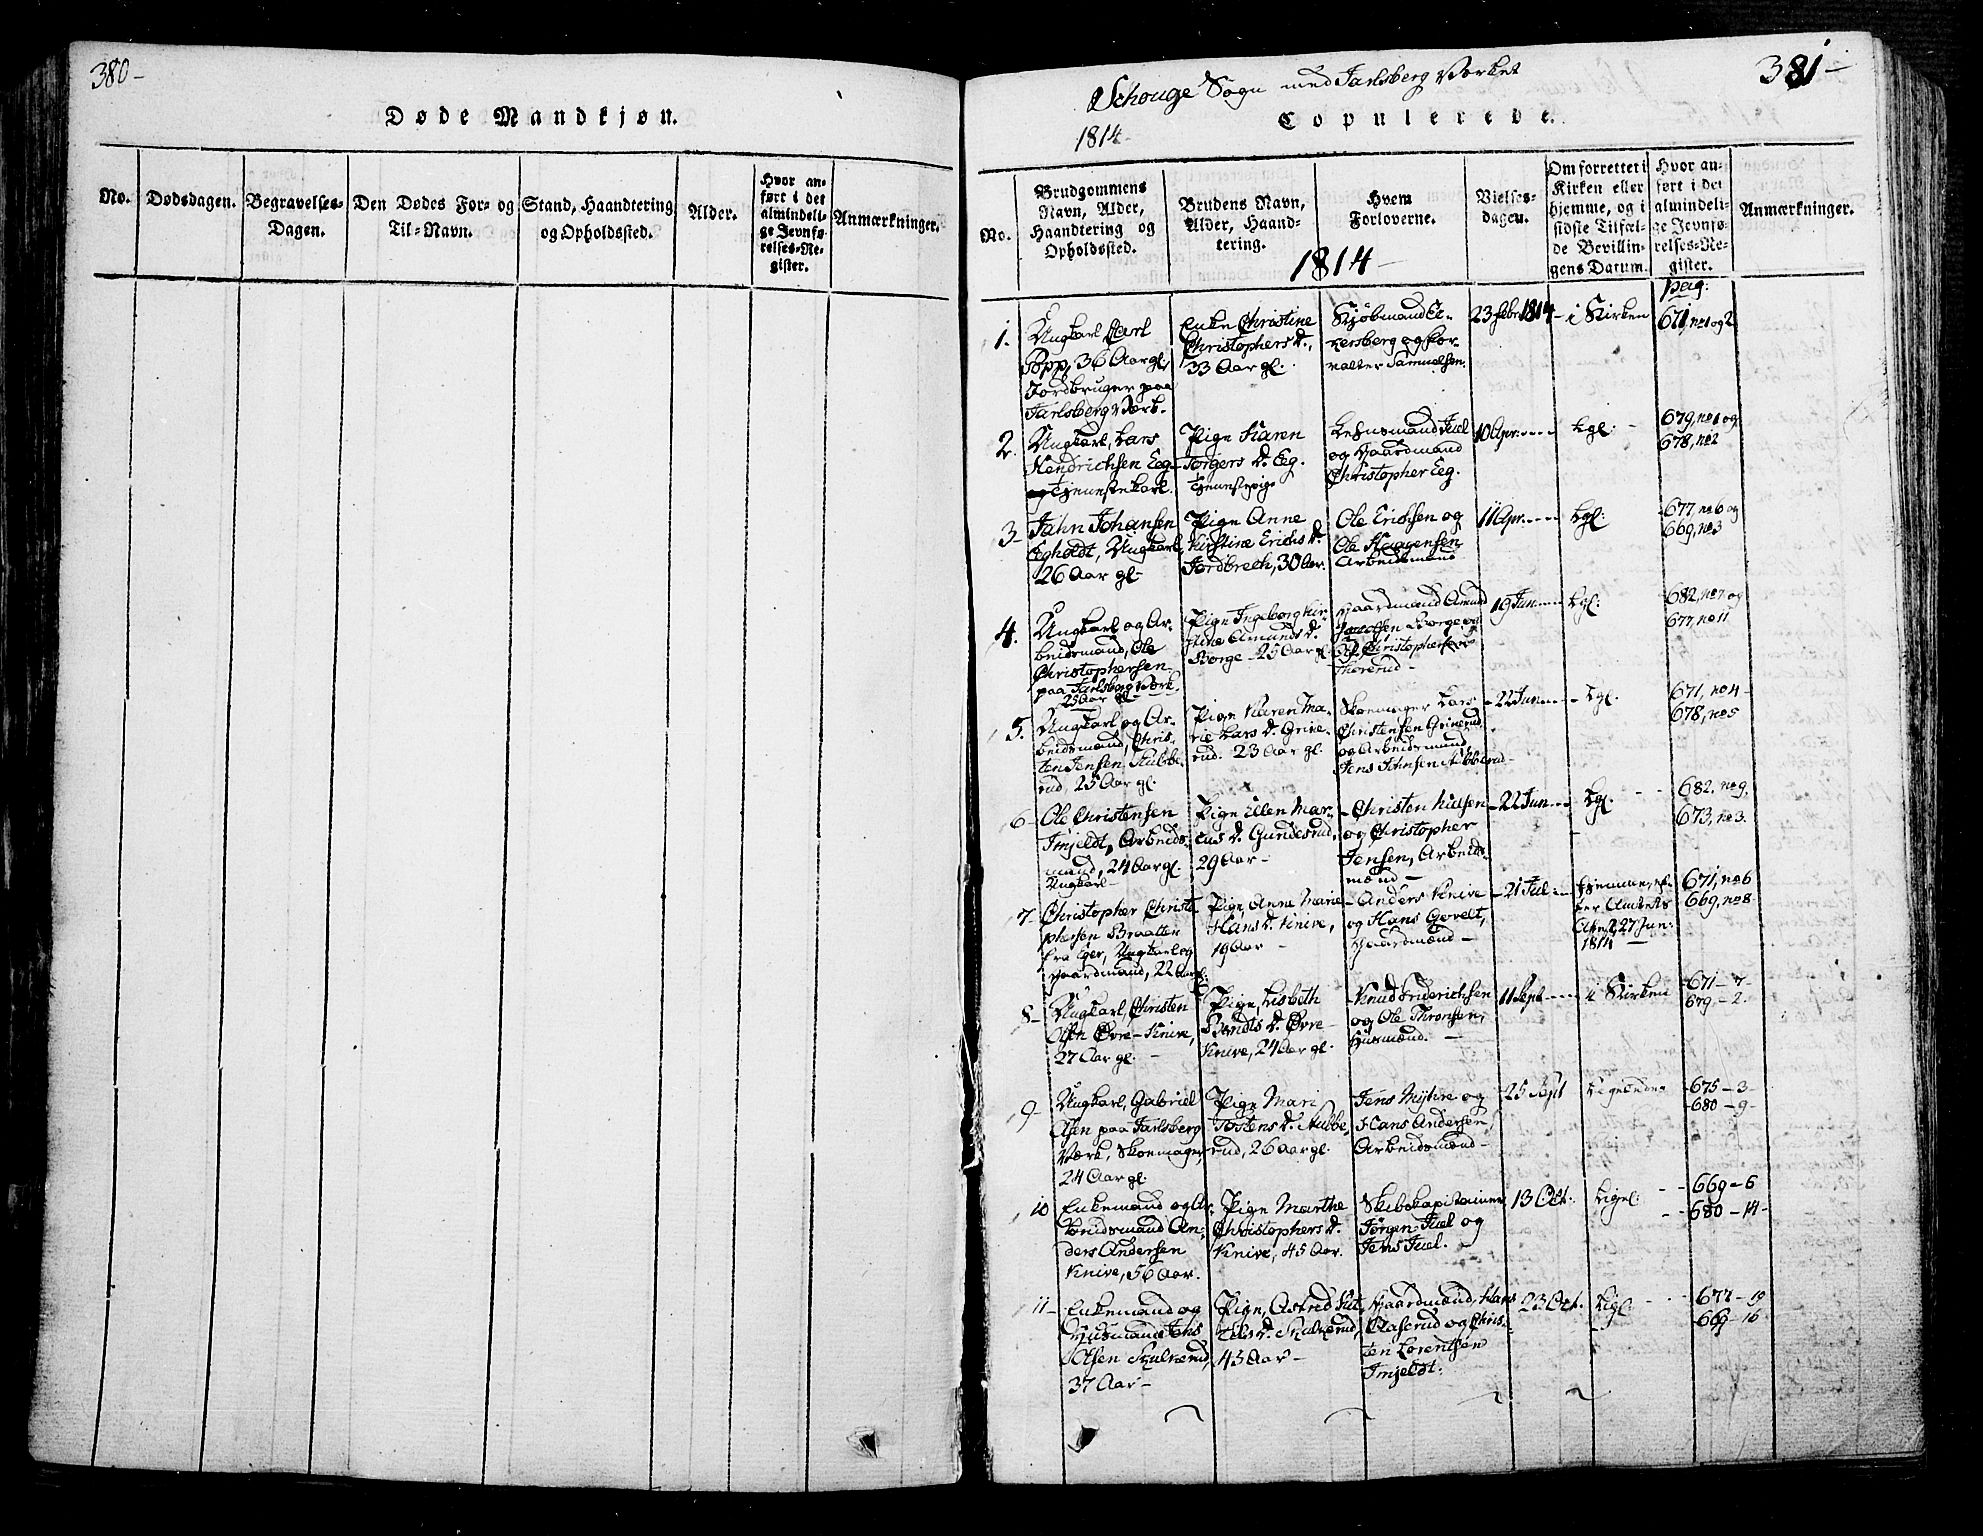 380-
Døde Mandkjøn.
No.
Dødsdagen.
Begravelses-
Dagen.
Den Dødes For- og
Til-Navn.
Stand, Haandtering
og Opholdssted.
Alder.
Hvor an-
ført i det
almindeli-
ge Jevnfø-
relses-Re-
gister.
Anmærkninger.
381-
Schouge Sogn med Jarlsberg Værket
1814-
Copulerede.
No.
Brudgommens
Navn, Alder,
Haandtering og
Opholdssted.
Brudens Navn,
Alder, Haand-
tering.
Hvem
Forloverne.
Vielses-
dagen.
Om forrettet i
Kirken eller
hjemme, og i
sidste Tilfæl-
de Bevillin-
gens Datum.
Hvor an-
ført i det
almindeli-
ge Jevnfø-
relses-Re-
gister.
Anmærkninger.
1814-
Pag:
1.
Ungkarl Carl
Popp, 36 Aar gl.
Jordbruger paa
Jarlsberg Værk.
Enke Christine
Christophers D.,
33 Aar gl.
Kjøbmand Ec-
kersberg og For-
valter Samuelsen.
23 Febr 1814
i Kirken
671, no 1 og 2
2.
Ungkarl, Lars
Hendrichsen Eeg
og Tjenestekarl.
Pige Karen
Torgers D. Eeg.
Tjenestepige
Lehnsmand Juel
og Gaardmand
Christopher Eeg.
10 Apr.
Lgl:
679, no 1 og
678, no 2
3-
Jahn Johansen
Egholdt, Ungkarl,
26 Aar gl-
Pige Anne
Kirstine Erichs D.
Jordbrech, 30 Aar.
Ole Erichsen og
Ole Haagensen
Arbeidsmænd
11 Apr.
Lgl:
677 no 6 og
669, no 3
4.
Ungkarl og Ar-
beidsmand, Ole
Christophersen
paa Jarlsberg Værk
25 Aar gl-
Pige Ingeborg Kir-
stine Amunds D.
Borge - 25 Aar gl
Gaardmænd Amund
Jacobsen Borge og
Ole Christophersen
Thorerud -
19 Jun.
Lgl:
682, no 7 og
677, no 11
5.
Ungkarl og Ar-
beidsmand, Chris-
ten Jensen Stubbe-
rud, 25 Aar gl.
Pige Karen Ma-
rie Lars D. Grine-
rud. 23 Aar gl.
Skomager Lars
Christensen Grinerud
og Arbeidsmand
Jens Johnsen Stubberud-
22 Jun
Lgl.
671, no 4-
678, no 5
6-
Ole Christensen
Imjeldt, Arbeids-
mand, 24 Aar gl.
Ungkarl-
Pige Ellen Mar-
cus D. Gundesrud,
29 Aar-
Christen Nilsen
og Christopher
Jensen, Arbeids-
mænd-
22 Jun
Lgl.
682. no 9.
673, no 3.
7-
Christopher Christo-
phersen Braatten
fra Eger, Ungkarl og
Gaardmand, 22 Aar gl.
Pige, Anne Marie
Hans D. Knive,
19 Aar -
Anders Knive
og Hans Gevelt,
Gaardmænd-
21 Jul
hjemme, ef-
ter Amtets
27 Jun:
1814-
671, no 6
669, no 8
8-
Ungkarl, Christen
Olsen Øvre-Knive,
27 Aar gl. -
Pige, Lisbeth
Bendts D. Øvre-
Knive, 24 Aar gl.
Knud Friderichsen
og Ole Thronsen,
Huusmænd. -
11 Sept
i Kirken
671-7-
679.-2.
9-
Ungkarl, Gabriel
Olsen paa Jarlsberg
Værk, Skomager,
24 Aar gl.
Pige Mari
Tostens D. Stubbe-
rud, 26 Aar gl.
Jens Myhre og
Hans Andersen,
Arbeidsmænd-
25 Sept
Ligeledes
675-3-
680-9-
10
Enkemand og Ar-
beidsmand An-
ders Andersen
Knive, 56 Aar.
Pige Marthe
Christophers D.
Knive, 45 Aar.
Skibskapitainer
Jørgen Juel og
Jens Juel. -
13 Oct.
Ligel:
669-6
680-14-
11-
Enkemand og
Huusmand Jens
Olsen Skulsrud,
37 Aar-
Pige, Astred Kit-
tels D. Skulsrud,
45 Aar-
Gaardmænd, Hans
Claserud og Chris-
ten Lorentsen
Imjeldt.
23 Oct.
Ligl:
677-19
669-16